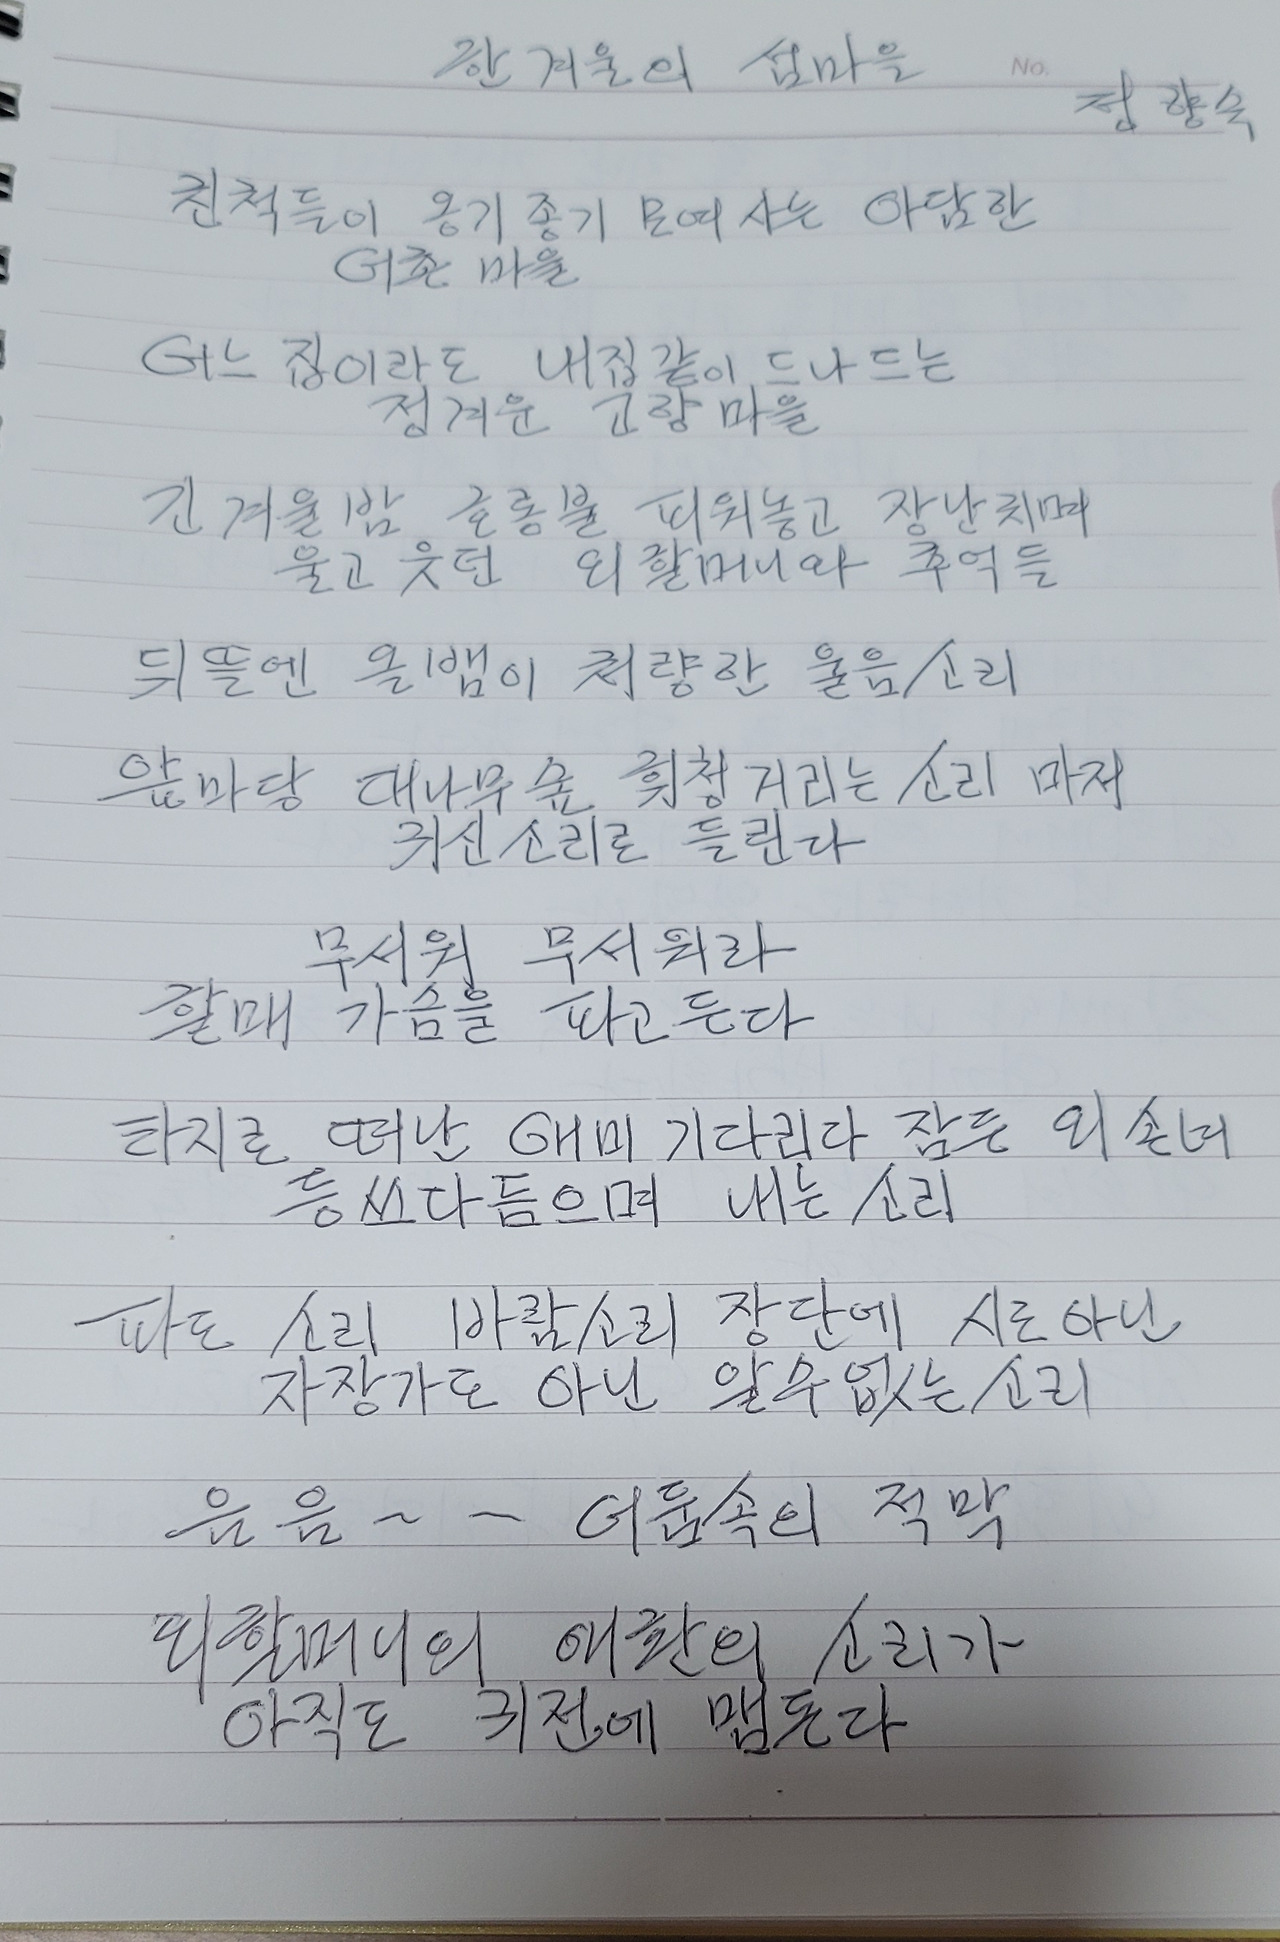 한겨울의 섬마을
No.
정향숙
친척들이 옹기종기 모여사는 아담한
어촌 마을
어느 집이라도 내집같이 드나드는
정겨운 고향마을
긴겨울밤 호롱불 피워놓고 장난치며
울고웃던 외할머니와 추억들
뒤뜰엔 올뱀이 처량한 울음소리
앞마당 대나무숲 휘청거리는소리 마저
귀신소리로 들린다
무서워 무서워라
할매 가슴을 파고든다
타지로 떠난 애미 기다리다 잠든 외손녀
등쓰다듬으며 내는소리
파도 소리 바람소리 장단에 시도아닌
자장가도 아닌 알수없는소리
음음~ ~ 어둠속의 적막
외할머니의 애환의 소리가
아직도 귀전에 맴돈다